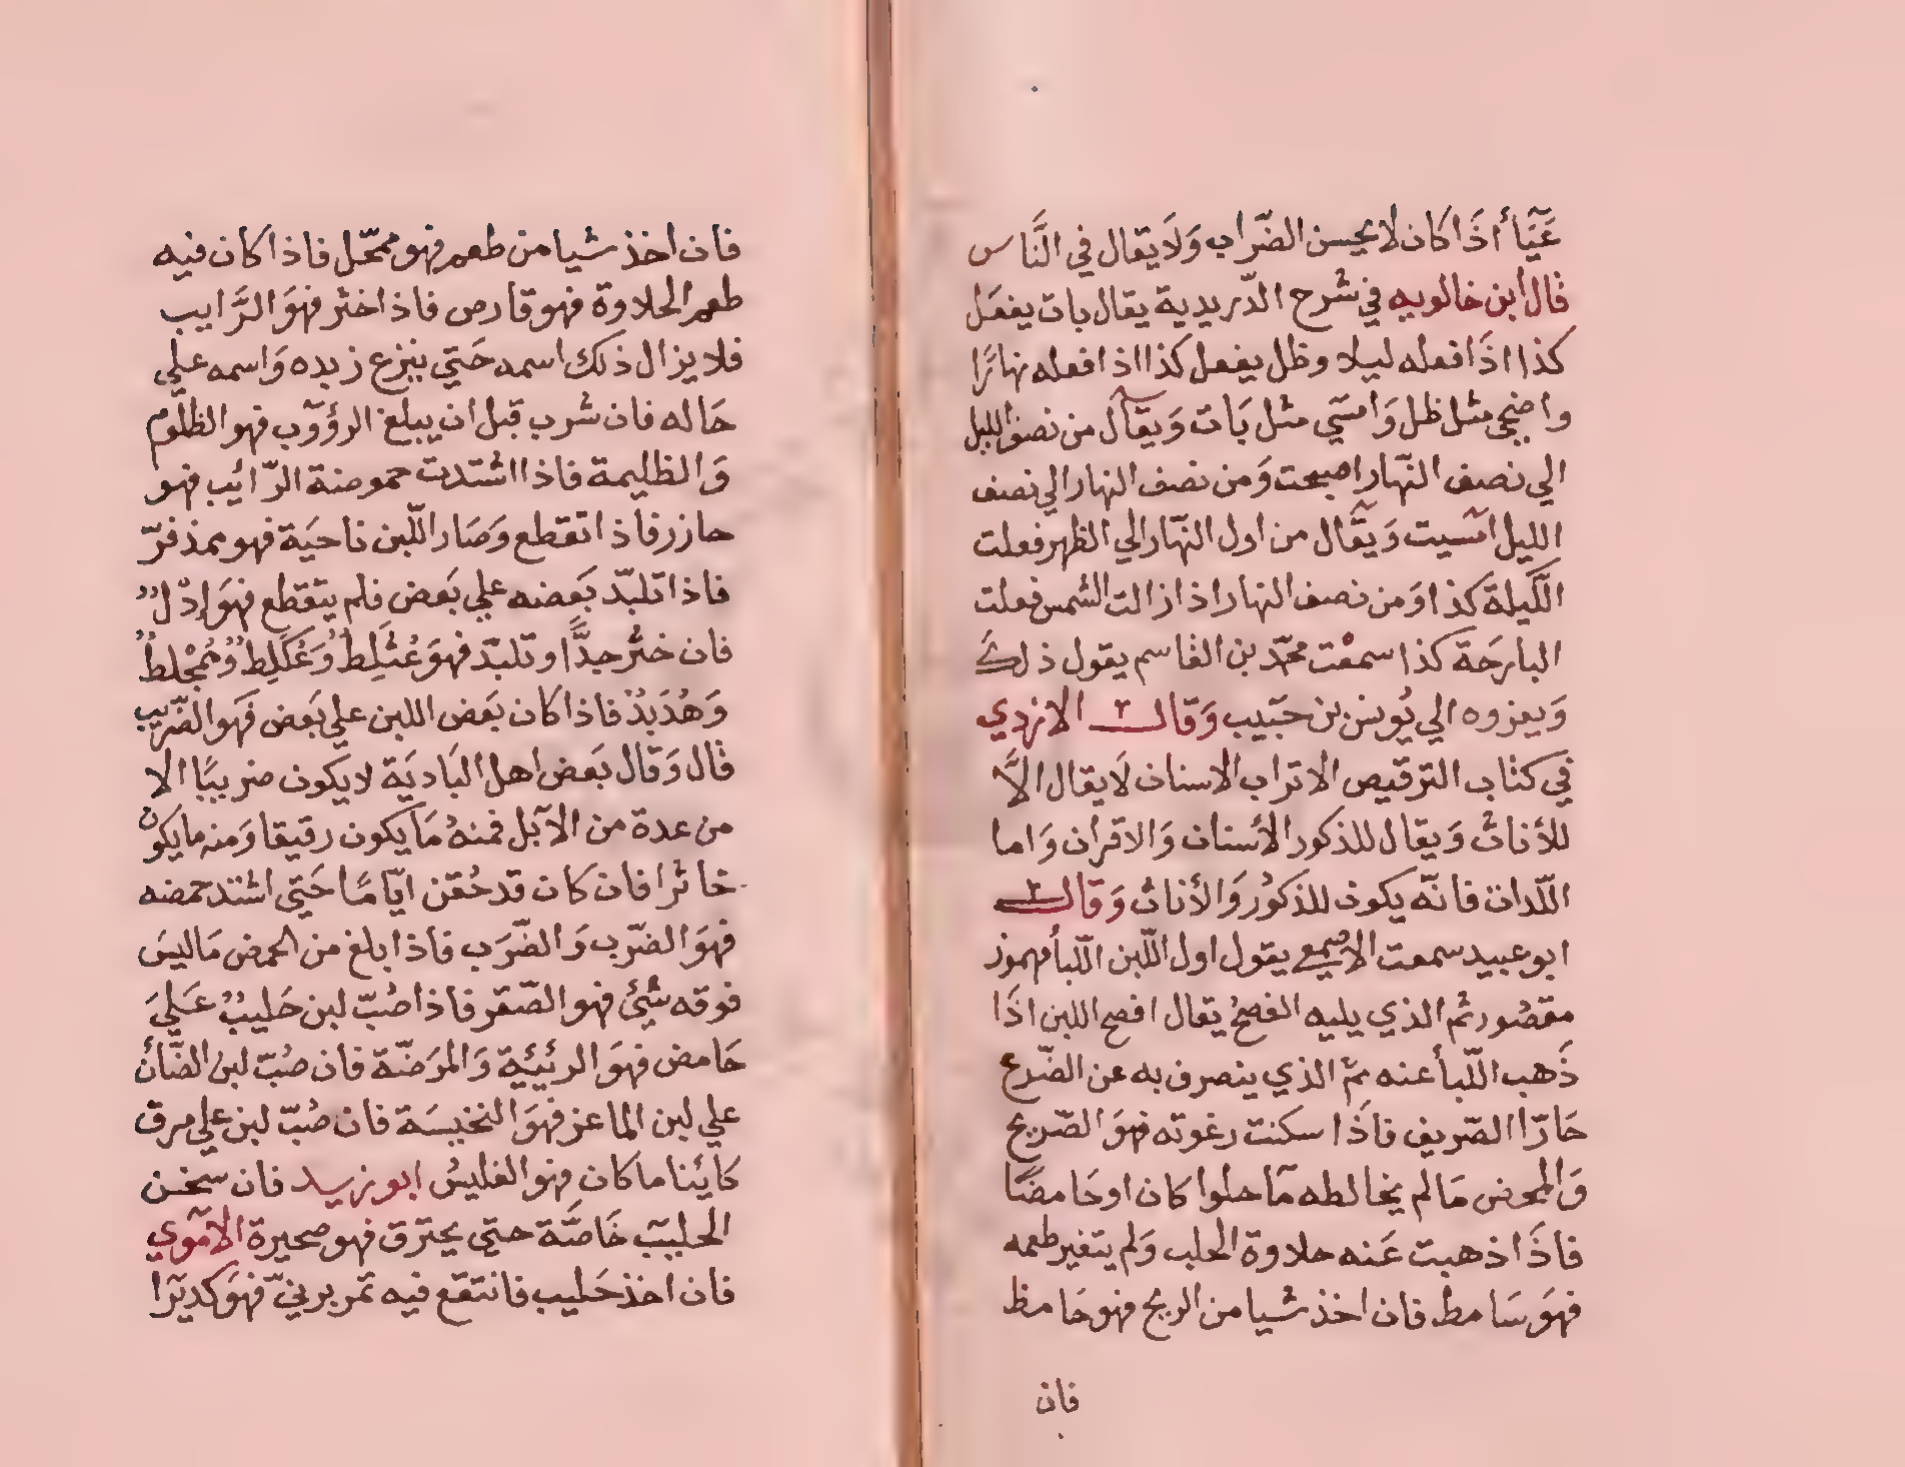 عَيَّاأ اذَا كان لا يحسن الضّراب وَلَا يقال في النَّاس
قال ابن خالويه في شرح الدّريدية يقال بات يفعَل
كذا اذَا فعله ليلا وظل يفعل كذا اذا فعله نهارًا
واضحي مثل ظل وَامسَي مثل بَات وَيقال من نصف الليل
الي نصف النّهار اصبحت وَمن نصف النهار الي نصف
الليل امسيت وَيقال من اول النّهار الي الظهر فعلت
اللّيلة كذا وَمن نصف النهار اذا زالت الشمس فعلت
البارحَة كذا سمعْت محمّد بن القاسم يقول ذلك
وَيعزوه الي يُونس بن حبَيب وَقال الازدي
في كتاب الترقيص الاتراب الاسنان لَا يقال الاَّ
للأناث وَيقال للذكور الأسنان وَالاقران وَاما
اللّدات فانّه يكون للذكوُر وَالأناث وَقال
ابو عبيد سمعت الاصمعي يقول اول اللّبن اللّبأ مهموز
مقصُور ثم الذي يليه الفصحُ يقال افصح اللبن اذَا
ذَهب اللّبأ عنه ثمّ الذي ينصرف به عن الضّرع
حَارّا الصّريف فاذَا سكنت رغوته فهوَ الصّريح
وَالمحض مَا لم يخالطه مآ حلوا كان او حَامضًا
فاذَا ذهبت عَنه حلاوة الحلب وَلم يتغير طعمه
فهوَ سَامط فان اخذ شيا من الريح فهو خَامط
فان
فان اخذ شيا من طعم فهو ممحّل فاذا كان فيه
طعم الحلاوة فهو قارص فاذا خثر فهوَ الرَّايب
فلا يزال ذلك اسمه حَتي ينزع زبده وَاسمه علي
حَاله فان شرب قبل ان يبلغ الرؤوب فهو الظلوم
وَالظليمة فاذا اشتدت حموضة الرّائيب فهو
حازر فاذ اتقطع وَصَار اللّبن ناحيَة فهو ممذقرّ
فاذا تلبّد بَعضه علي بَعض فلم يتقطع فهوَ إدْلٌ
فان خثُر جدًّا وتلبّد فهوَ عُثَلِطٌ وَعُكَلِطٌ وَعُجَلِطٌ
وَهُدَبِدٌ فاذا كان بَعض اللبن علي بَعض فهَو الضّريب
قال وَقال بَعض اهل البَاديَة لا يكون ضريبًا الا
من عدة من الآبل فمنهُ مَا يكون رقيقا وَمنه ما يكون
خاثرا فان كان قد حُقن ايّامًا حَتي اشتد حمضه
فهوَ الضّرب وَالضّرَب فاذا بلغ من الحمض مَا ليسَ
فوقه شيئ فهو الصّقر فاذا صُبّ لبن حَليبٌ عَليَ
حَامض فهوَ الرثيئة وَالمرَضّة فان صُبّ لبن الضّأن
علي لبن الماعز فهوَ النخيسَة فان صُبّ لبن علي مرق
كائنا ما كان فهو الغليسُ ابو زيد فان سخن
الحليب خَاصَّة حتي يحترق فهو صحيرة الاموي
فان اخذ حَليب فانتقع فيه تمر برنيّ فهوَ كديَرا